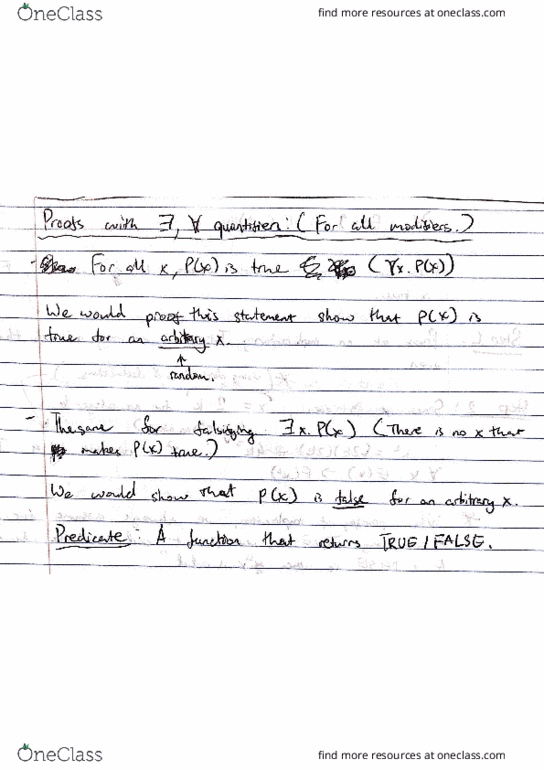 OneClass
find more resources at oneclass.com
Proofs with ∃, ∀ quantifier: (For all modifiers.)
- For all x, P(x) is true (∀x. P(x))
We would proof this statement show that P(x) is
true for an arbitrary x.
↑
random.
- The same for falsifying ∃x. P(x) (There is no x that
makes P(x) true.)
We would show that P(x) is false for an arbitrary x.
Predicate: A function that returns TRUE/FALSE.
OneClass
find more resources at oneclass.com